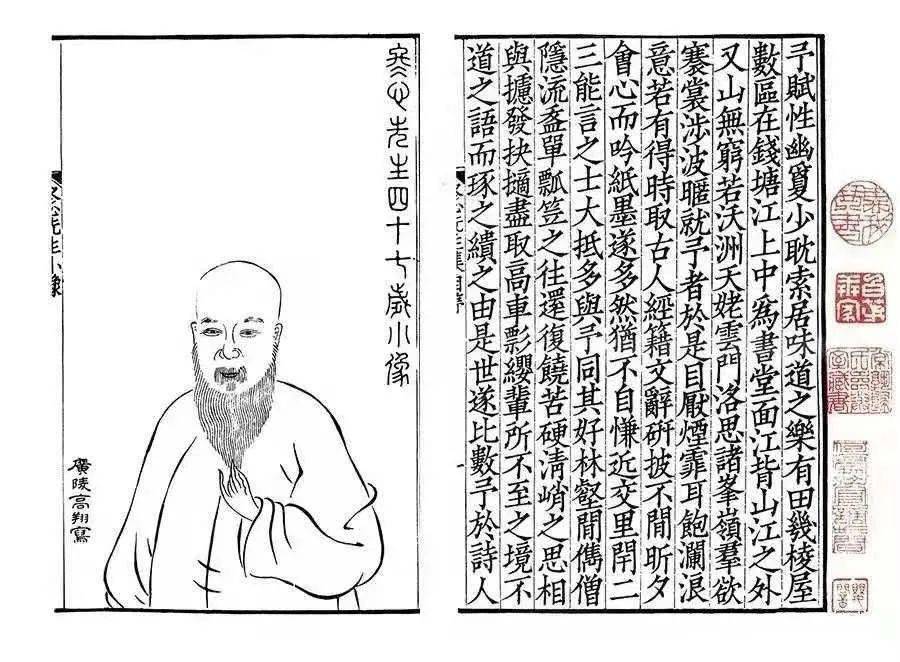 予賦性幽敻少耽索居味道之樂有田幾棱屋
數區在錢塘江上中爲書堂面江背山江之外
又山無窮若沃洲天姥雲門洛思諸峯嶺羣欲
褰裳涉波暱就予者於是目厭煙霏耳飽瀾浪
意若有得時取古人經籍文辭硏披不閒昕夕
會心而吟紙墨遂多然猶不自慊近交里閈二
三能言之士大抵多與予同其好林壑閒儁僧
隱流盋單瓢笠之往還復饒苦硬清峭之思相
與攄發抉擿盡取高車影纓輩所不至之境不
道之語而琢之繢之由是世遂比數予於詩人
冬心先生四十七歲小像
廣陵高翔寫